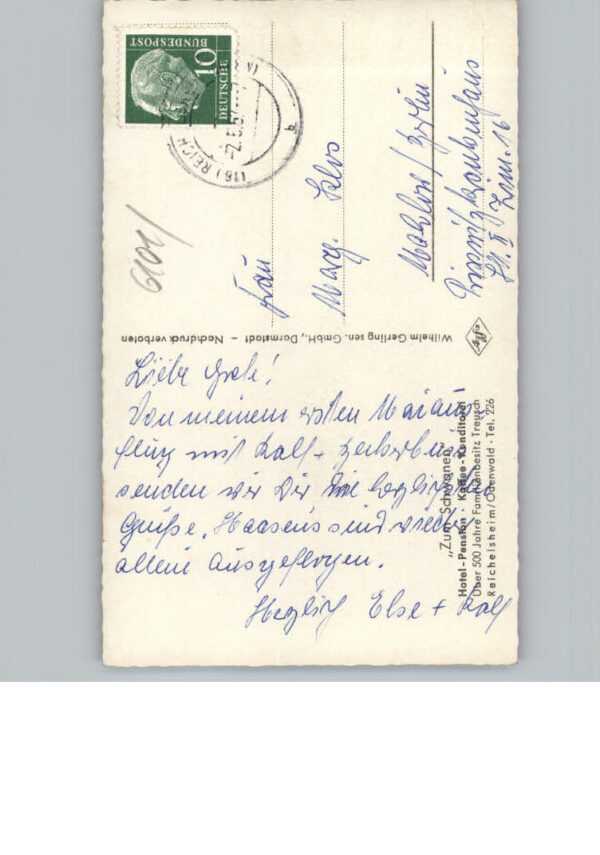 DEUTSCHE
BUNDESPOST
10
(16) REICH
2.5.57
Frau
Marg.
Mahlow / Berlin
Krankenhaus
St. II Zim. 16
Wilhelm Gerling sen. GmbH., Darmstadt – Nachdruck verboten
Agfa
Liebe Grete!
Von meinem ersten Maiaus-
flug mit Ralf +
senden wir Dir herzlichste
Grüße. Haasens sind wieder
allein ausgeflogen.
Herzlich Else + Ralf
„Zum Schwanen“
Hotel-Pension · Kaffee-Konditorei
Über 500 Jahre Familienbesitz Treusch
Reichelsheim/Odenwald · Tel. 226